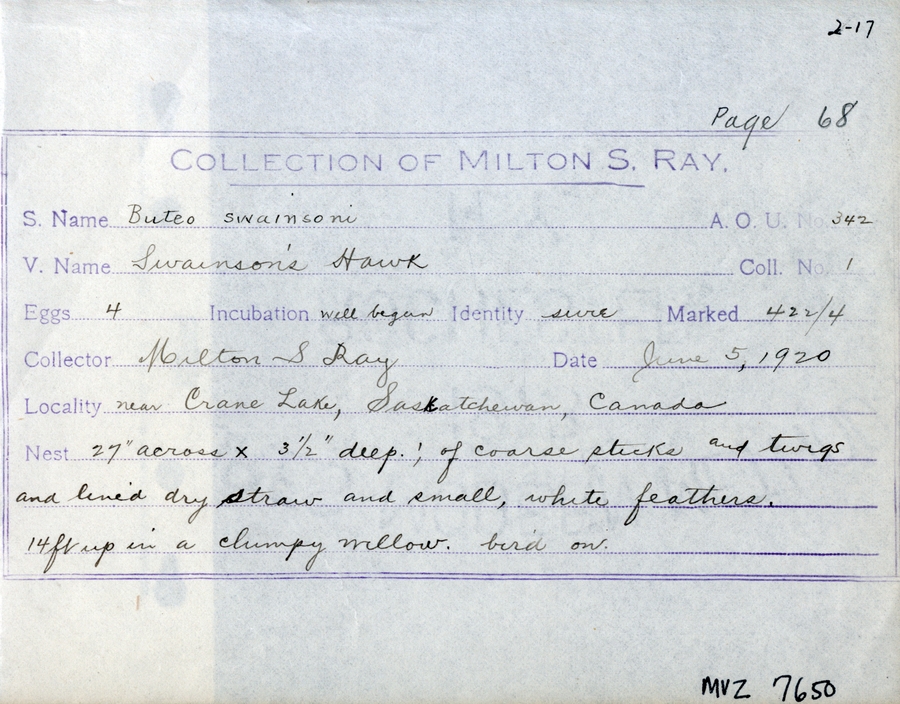 2-17
Page 68
COLLECTION OF MILTON S. RAY.
S. Name Buteo swainsoni A. O. U. No. 342
V. Name Swainson's Hawk Coll. No. 1
Eggs 4 Incubation well begun Identity sure Marked 422/4
Collector Milton S Ray Date June 5, 1920
Locality near Crane Lake, Saskatchewan, Canada
Nest 27" across x 3 1/2" deep.; of coarse sticks and twigs
and lined dry straw and small, white feathers.
14 ft up in a clumpy willow. bird on.
MVZ 7650